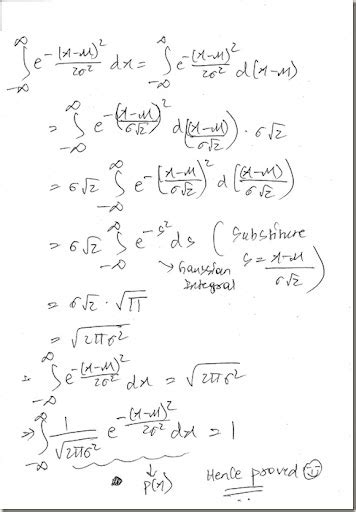 ∫_{-∞}^{∞} e^{-(x-μ)²/2σ²} dx = ∫_{-∞}^{∞} e^{-(x-μ)²/2σ²} d(x-μ)
= ∫_{-∞}^{∞} e^{-((x-μ)/σ√2)²} d((x-μ)/σ√2) · σ√2
= σ√2 ∫_{-∞}^{∞} e^{-((x-μ)/σ√2)²} d((x-μ)/σ√2)
= σ√2 ∫_{-∞}^{∞} e^{-s²} ds (substitute s = (x-μ)/σ√2)
→ Gaussian Integral
= σ√2 · √π
= √(2πσ²)
∴ ∫_{-∞}^{∞} e^{-(x-μ)²/2σ²} dx = √(2πσ²)
⇒ ∫_{-∞}^{∞} 1/√(2πσ²) e^{-(x-μ)²/2σ²} dx = 1
↓
p(x)
Hence proved ☺